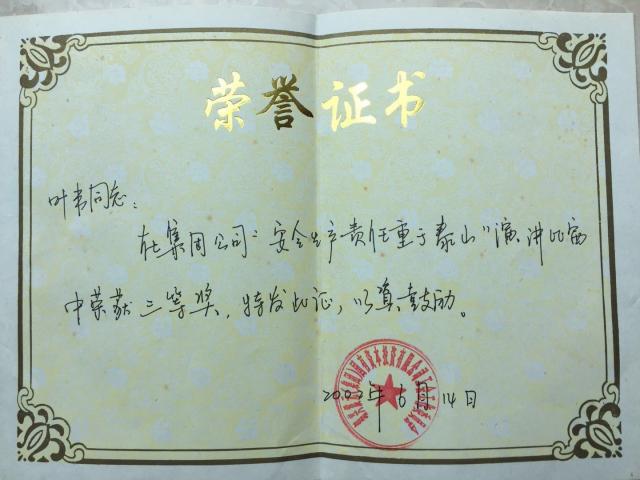 荣誉证书
叶韦同志：
在集团公司“安全生产责任重于泰山”演讲比赛
中荣获三等奖，特发此证，以资鼓励。
2002年6月14日